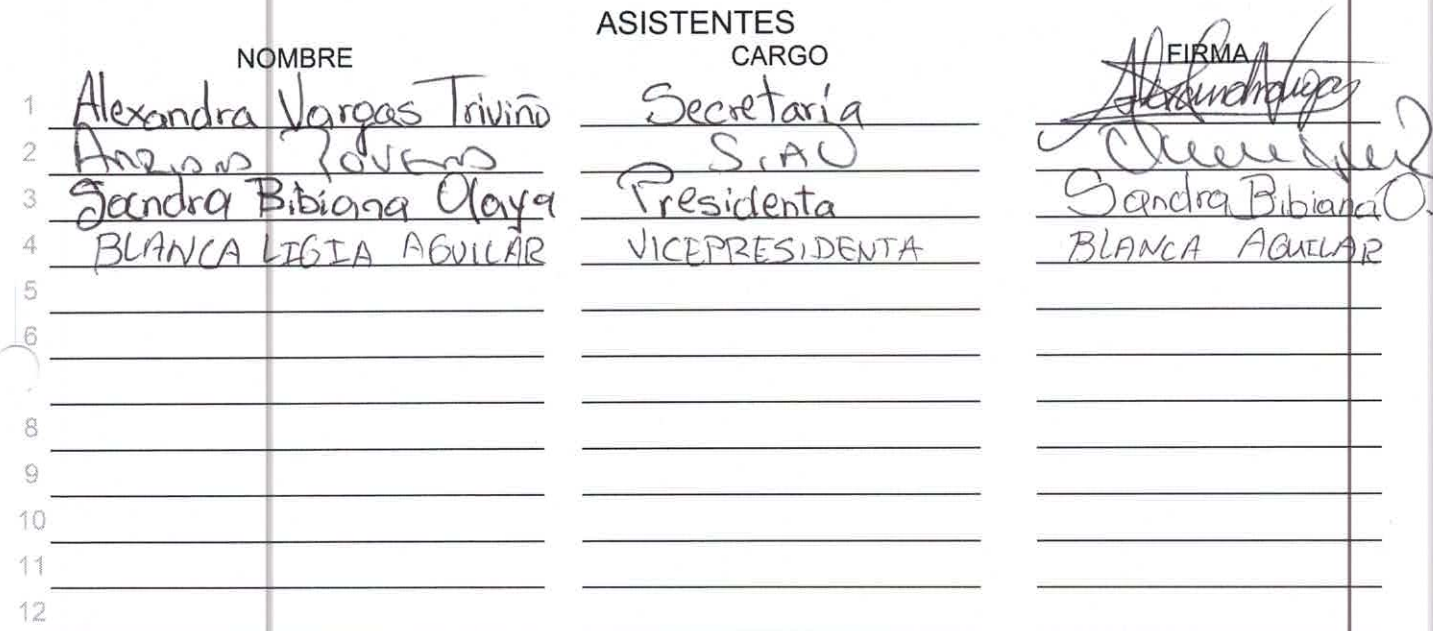 ASISTENTES
NOMBRE CARGO FIRMA
1 Alexandra Vargas Triviño Secretaria Alexandra Vargas
2 S.I.AU
3 Sandra Bibiana Olaya Presidenta Sandra Bibiana O.
4 BLANCA LIGIA AGUILAR VICEPRESIDENTA BLANCA AGUILAR
5
6
8
9
10
11
12